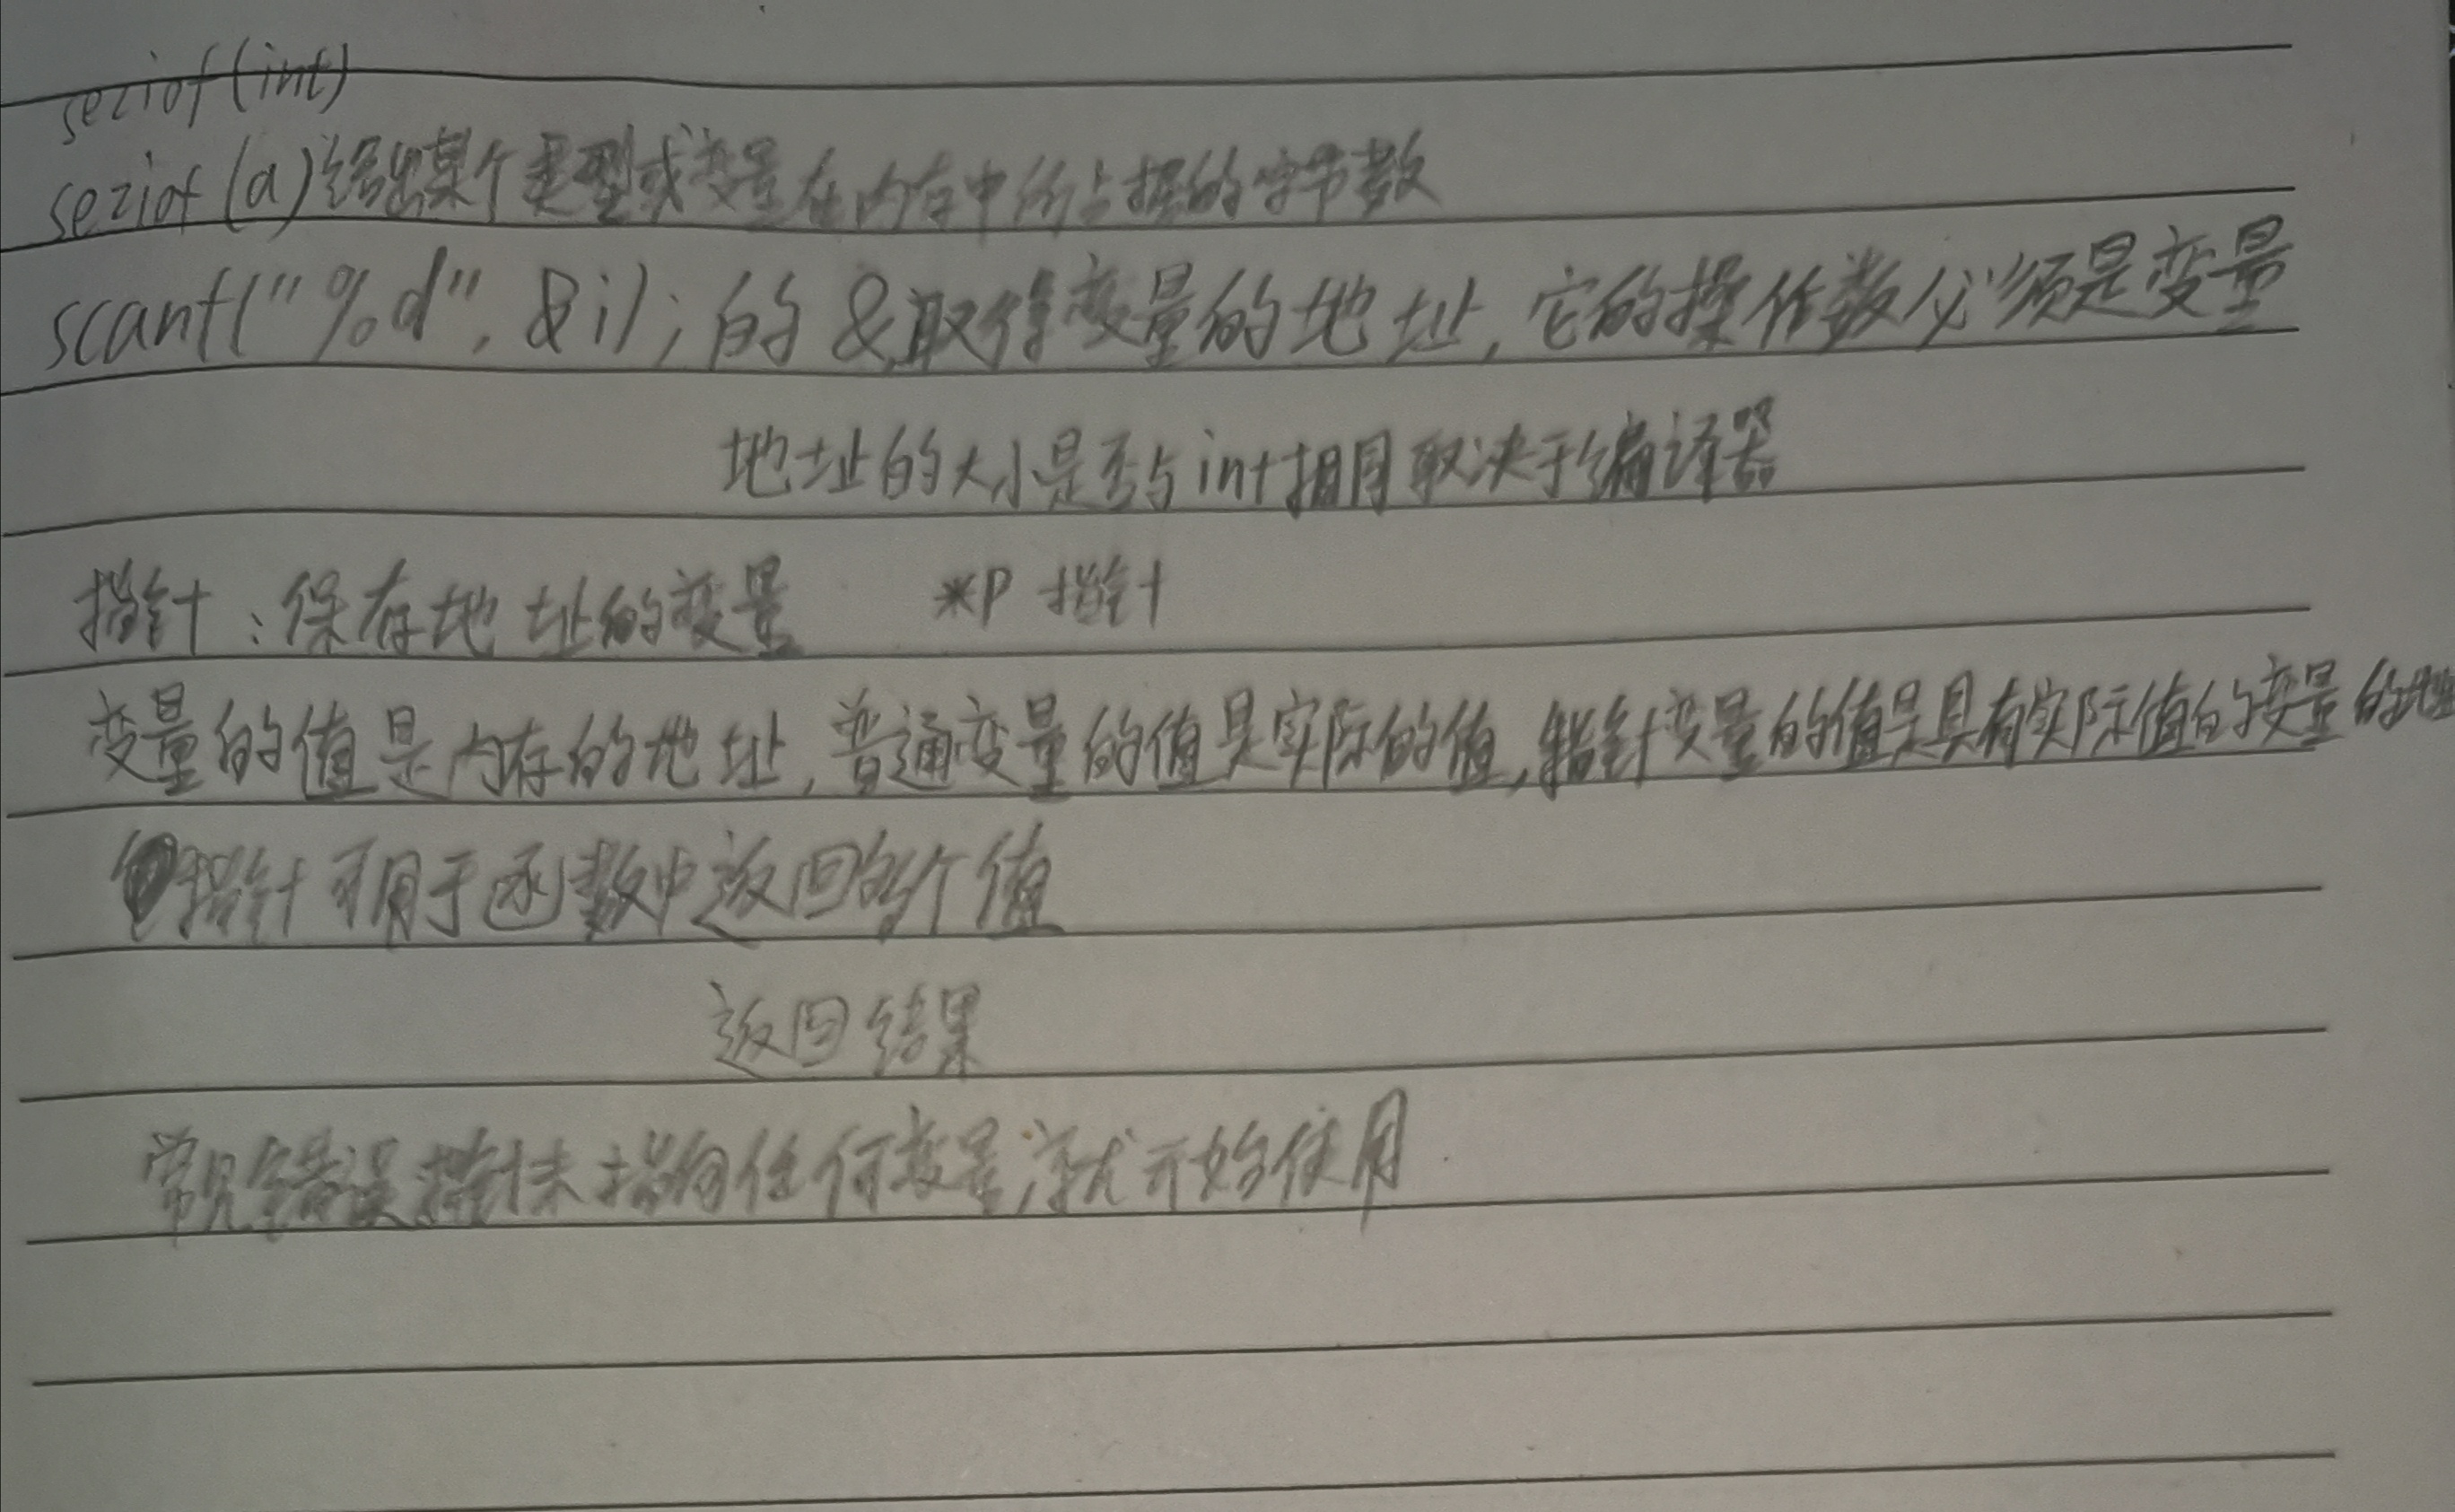 seziof(int)
seziof(a)给出某个类型或变量在内存中所占据的字节数
scanf("%d", &i); 的 &取得变量的地址, 它的操作数必须是变量
地址的大小是否与int相同取决于编译器
指针:保存地址的变量 *P 指针
变量的值是内存的地址, 普通变量的值是实际的值, 指针变量的值是具有实际值的变量的地址
指针可用于函数中返回多个值
返回结果
常见错误指针未指向任何变量,就开始使用